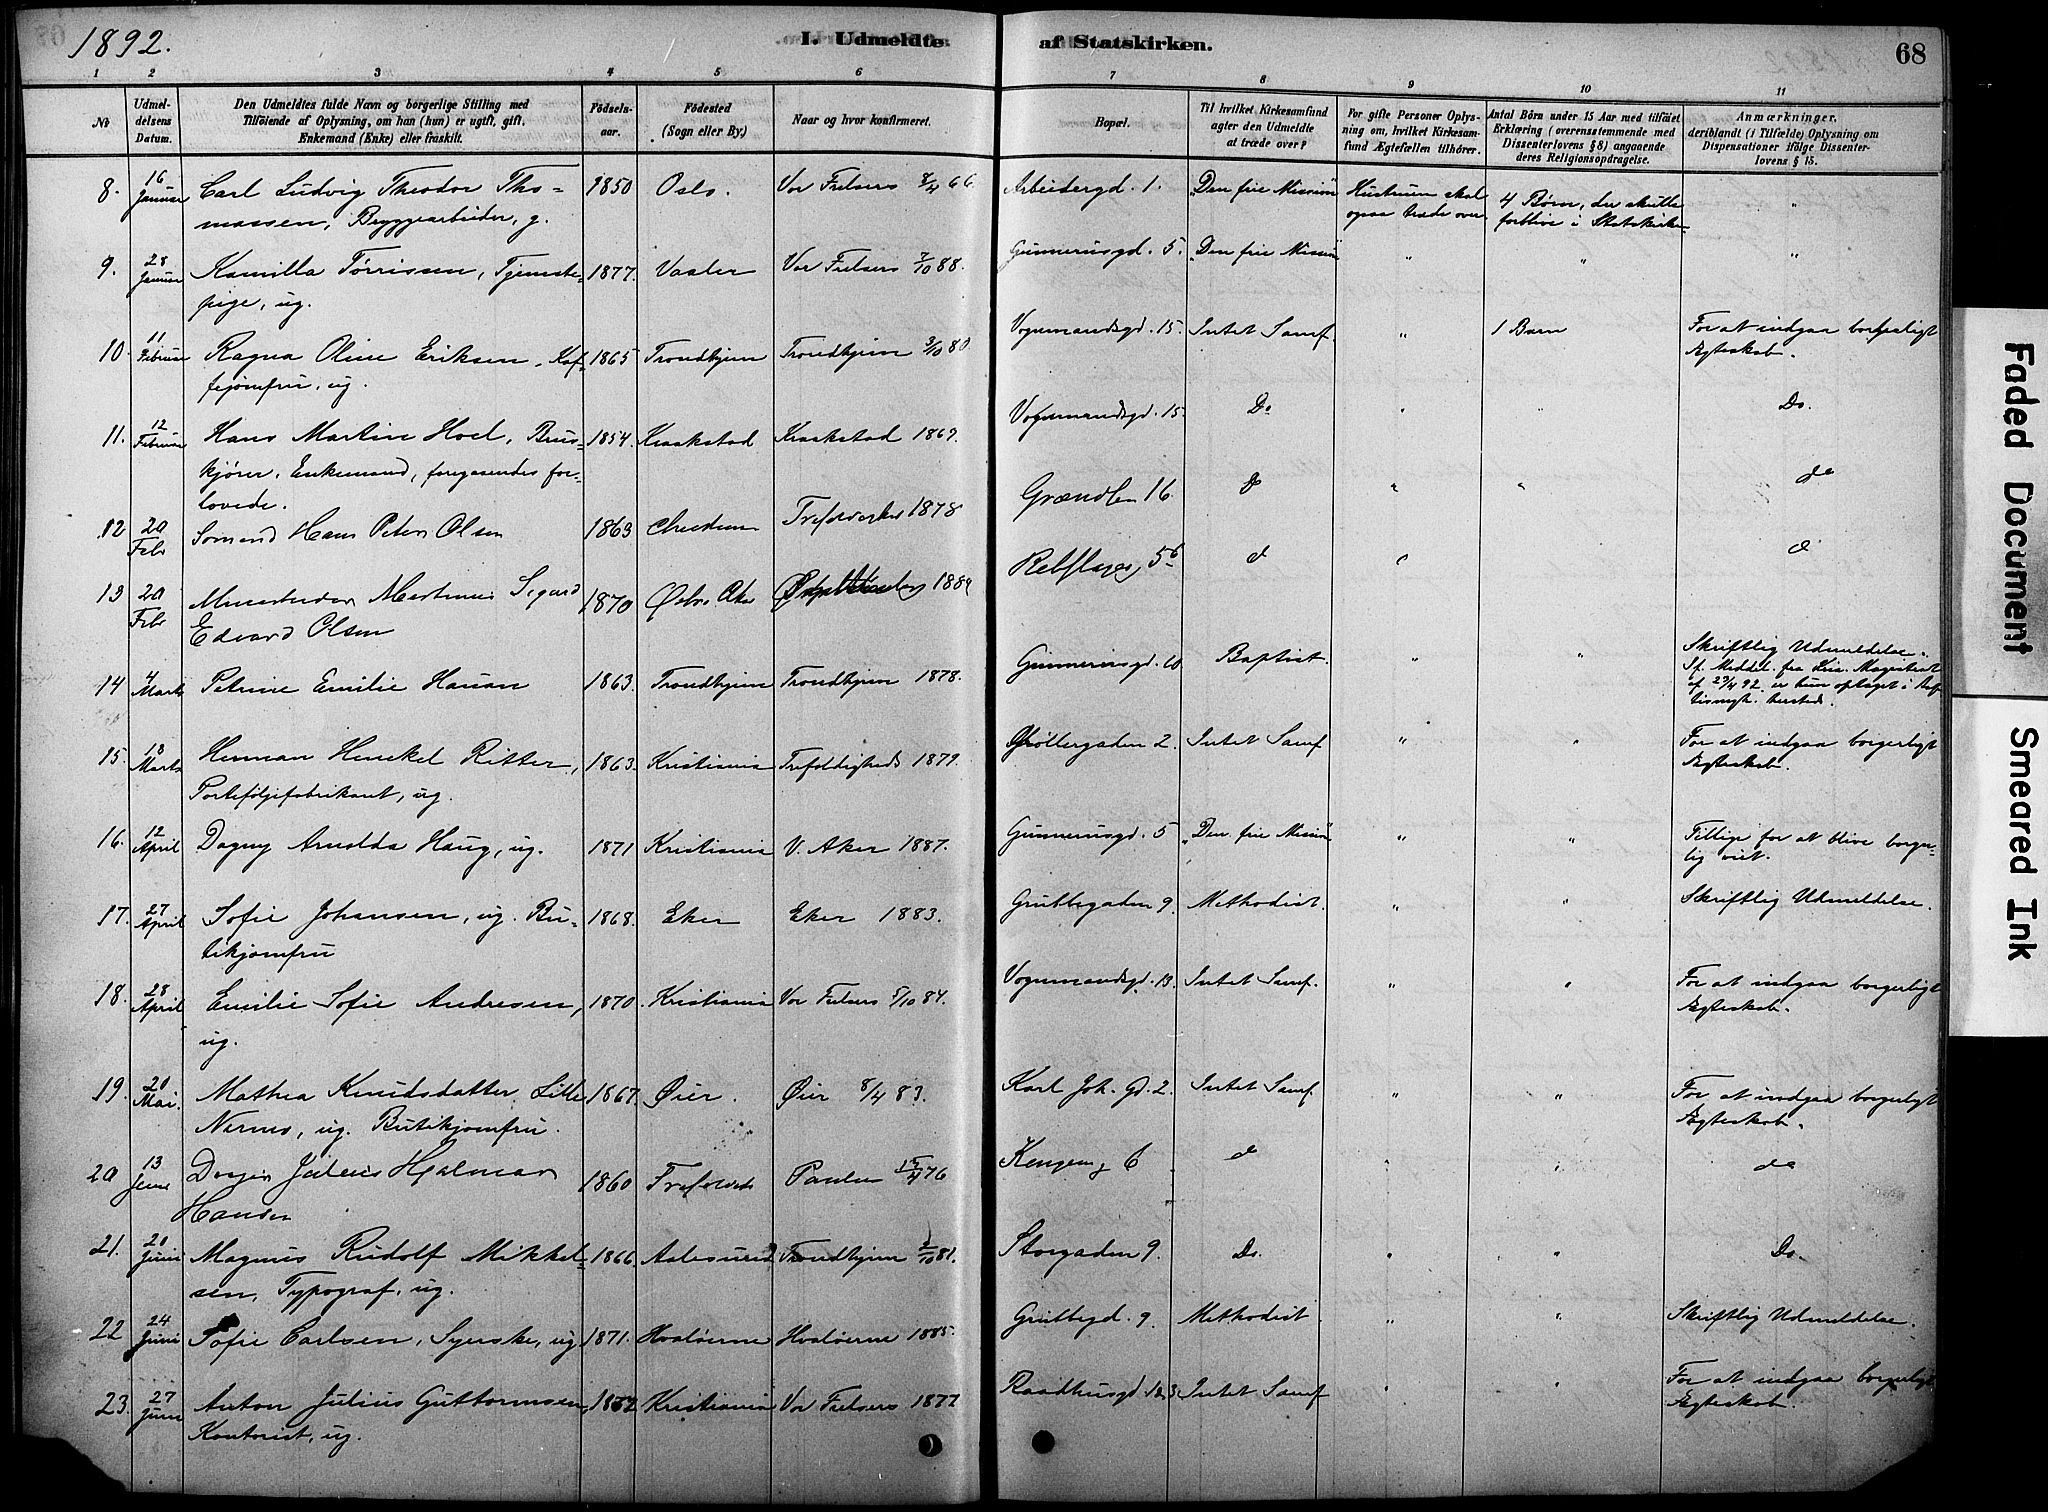 1892.
I. Udmeldte
af Statskirken.
68
1 2 3 4 5 6 7 8 9 10 11
No
Udmel-
delsens
Datum.
Den Udmeldtes fulde Navn og borgerlige Stilling med
Tilføiende af Oplysning, om han (hun) er ugift, gift,
Enkemand (Enke) eller fraskilt.
Fødsels-
aar.
Fødested
(Sogn eller By.)
Naar og hvor konfirmeret.
Bopæl.
Til hvilket Kirkesamfund
agter den Udmeldte
at træde over?
For gifte Personer Oplys-
ning om, hvilket Kirkesam-
fund Ægtefællen tilhører.
Antal Börn under 15 Aar med tilføiet
Erklæring (overensstemmende med
Dissenterlovens § 8) angaaende
deres Religionsopdragelse.
Anmærkninger,
deriblandt (i Tilfælde) Oplysning om
Dispensationer ifølge Dissenter-
lovens § 15.
8. 16 Januar Carl Ludvig Theodor Tho- 1850 Oslo. Vor Frelsers 8/4 66 Arbeidergd. 1. "Den frie Mission" Hustruen skal 4 Børn, der skulle "
massen, Bryggearbeider, g. ogsaa træde over forblive i Statskirke-
9. 28 Januar Kamilla Tørrissen, Tjeneste- 1877. Vaaler Vor Frelsers 7/10 88. Gunnerusgd. 5. "Den frie Mission " " "
pige, ug.
10. 11 Februar Ragna Oline Eriksen, Kaf- 1865 Trondhjem Trondhjem 3/10 80. Vognmandsgd. 15. Intet Samf. " 1 Barn For at indgaa borgerligt
fejomfru, ug. Ægteskab.
11. 12 Februar Hans Martin Hoel, Brus- 1854. Kraakstad Kraakstad 1869. Vognmandsgd. 15. Do " " Do.
kjører, Enkemand, foregaaendes for-
lovede.
12 20 Feb Sømand Hans Peter Olsen 1863 1878 Grændsen 16 do " " do
13 20 Feb Martinius Sigurd 1870 Østre Aker 1884 Rebslager 5b d "
Edvard Olsen
14 4 Marts Petrine Emilie Hauan 1863. Trondhjem Trondhjem 1878. Gunnerusgd. 10 Baptist. " " Skriftlig Udmeldelse.
If. Meddel. fra Kra. Magistrat
af 23/4 92 er hun optaget i Bap-
tismgh. hersteds.
15. 18 Marts Herman Henckel Ritter, 1863. Kristiania Trefoldigheds 1879. Møllergaden 2. Intet Samf " " For at indgaa borgerligt
Porteføljefabrikant, ug. Ægteskab.
16. 12 April Dagny Arnolda Haug, ug. 1871 Kristiania V. Aker 1887. Gunnerusgd. 5 "Den frie Mission " " Tillige for at blive borger-
lig viet.
17. 27 April Sofie Johansen, ug. Bu- 1868. Eker Eker 1883. Grubbegaden 9. Methodist. " " Skriftlig Udmeldelse.
tikjomfru
18. 28 April Emilie Sofie Andresen, 1870. Kristiania Vor Frelsers 5/10 84. Vognmandsgd. 13. Intet Samf. " " For at indgaa borgerligt
ug. Ægteskab.
19. 20 Mai. Mathea Knudsdatter Lille 1867. Øier. Øier 8/4 83. Karl Joh. Gd. 2. Intet Samf. " " For at indgaa borgerligt
Nermo, ug. Butikjomfru. Ægteskab.
20 13 Juni Julius Hjalmar 1860 Trefoldh Paulus 4 76 Kongensg 6 d " " do
Hansen
21. 20 Juni Magnus Rudolf Mikkel- 1866. Aalesund Trondhjem 2/10 81. Storgaden 9. Do. " " Do.
sen, Typograf, ug.
22 24 Juni Sofie Carlsen, Syerske, ug 1871. Hvaløerne Hvaløerne 1885. Grubbegd. 9. Methodist. " " Skriftlig Udmeldelse.
23. 27 Juni Anton Julius Guttormsen, 1862. Kristiania Vor Frelsers 1877 Raadhusgd. Intet Samf " " For at indgaa borgerligt
Kontorist, ug. Ægteskab.
Faded Document
Smeared Ink